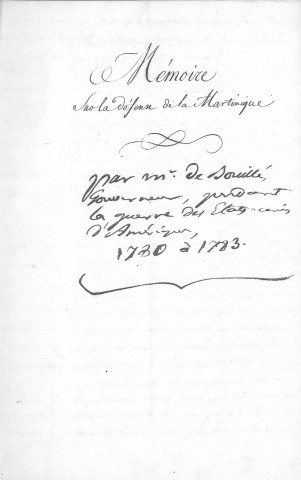 Mémoire
Sur la défense de la Martinique
par mr. de Bouillé,
Gouverneur, pendant
la guerre des Etats-unis
d'Amérique,
1780 à 1783.